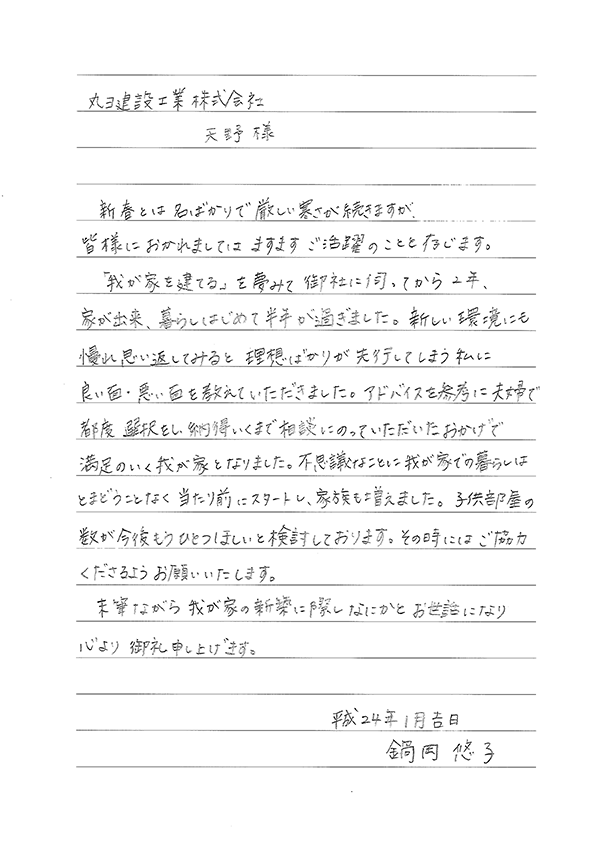 丸ヨ建設工業株式会社
天野様
新春とは名ばかりで厳しい寒さが続きますが、
皆様におかれましてはますますご活躍のことと存じます。
「我が家を建てる」を夢みて御社に伺ってから2年、
家が出来、暮らしはじめて半年が過ぎました。新しい環境にも
慣れ思い返してみると理想ばかりが先行してしまう私に
良い面・悪い面を教えていただきました。アドバイスを参考に夫婦で
都度選択をし納得いくまで相談にのっていただいたおかげで
満足のいく我が家となりました。不思議なことに我が家での暮らしは
とまどうことなく当たり前にスタートし、家族も増えました。子供部屋の
数が今後もうひとつほしいと検討しております。その時にはご協力
くださるようお願いいたします。
末筆ながら我が家の新築に際しなにかとお世話になり
心より御礼申し上げます。
平成24年1月吉日
鍋岡悠子